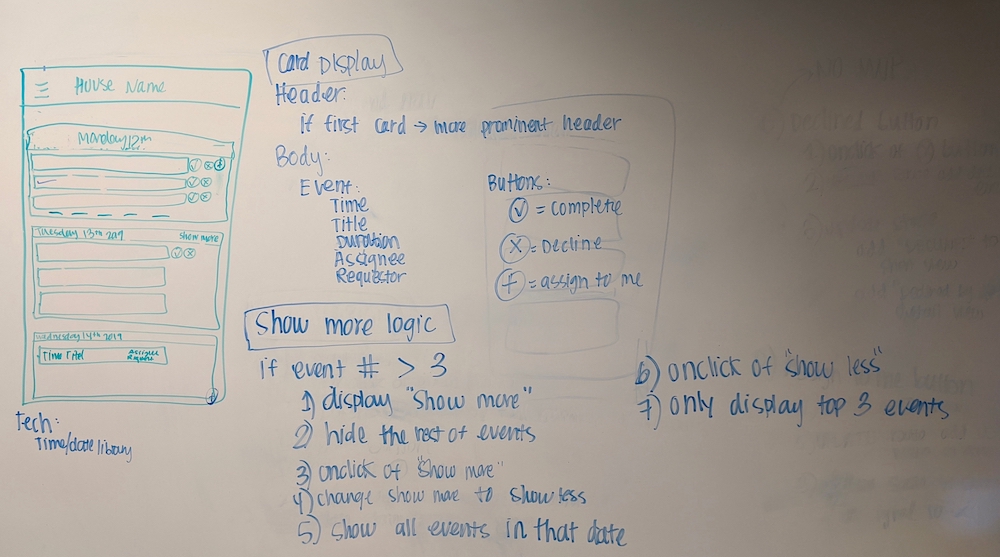 House Name
Monday 12th
Tuesday 13th 2019
show more
Wednesday 14th 2019
Time Title
Assignee
Request
Tech:
Time/date library
Card Display
Header:
if first card → more prominent header
Body:
Event:
Time
Title
Duration
Assignee
Requestor
Buttons:
✓ = complete
X = Decline
+ = assign to me
Show more logic
if event # > 3
1) display "Show more"
2) hide the rest of events
3) onclick of "Show more"
4) change show more to show less
5) show all events in that date
6) onclick of "show less"
7) only display top 3 events